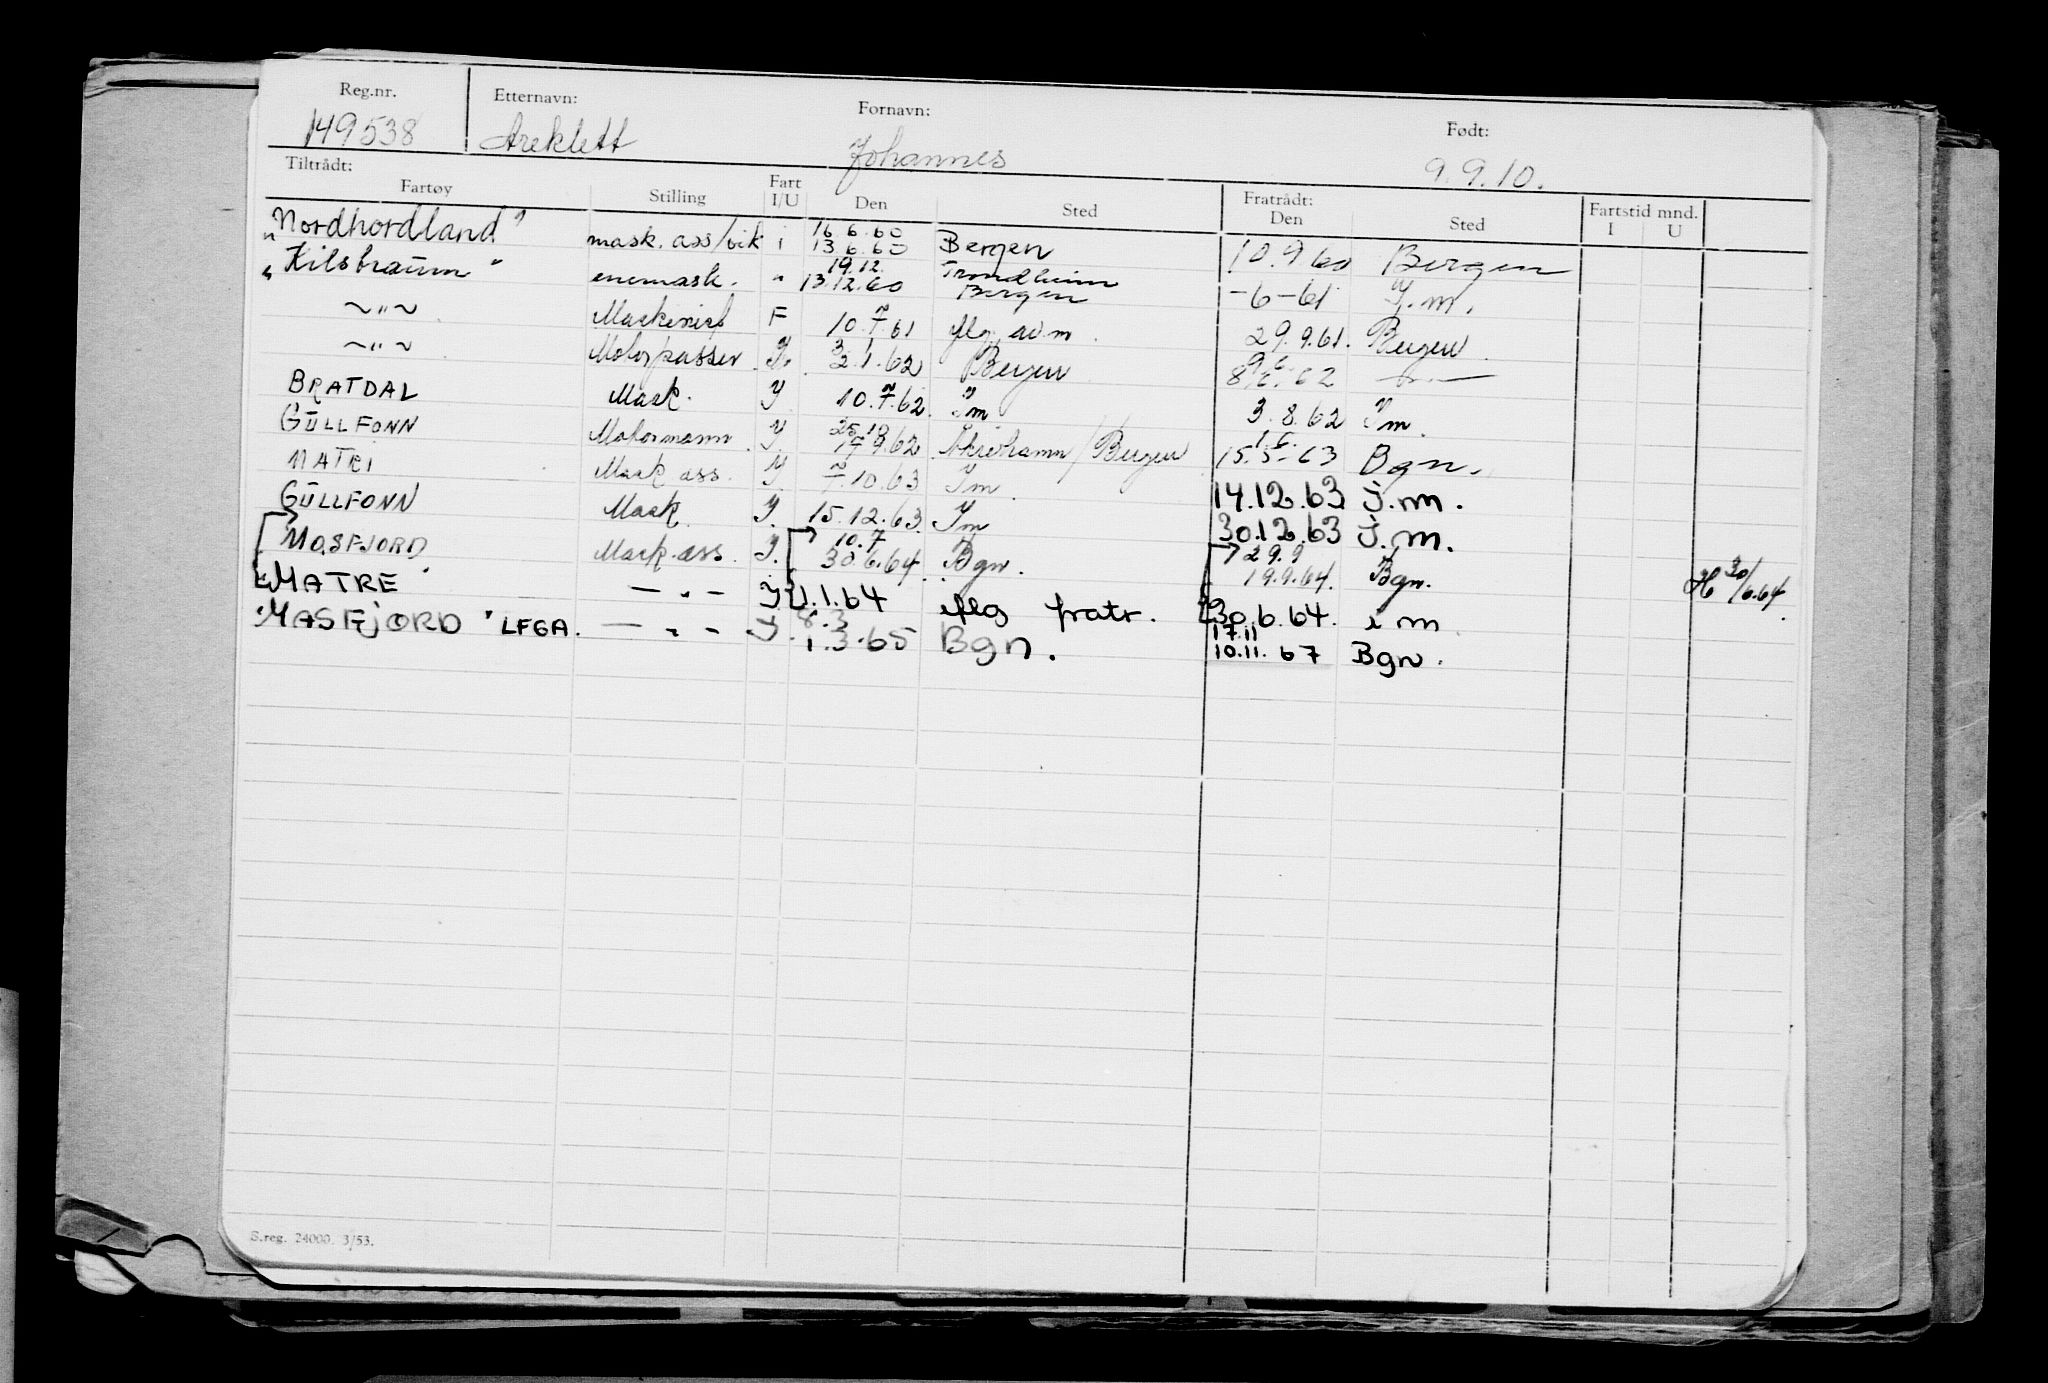 Reg.nr. Etternavn: Fornavn: Født:
149538 Areklett Johannes 9.9.10.
Tiltrådt: Fratrådt: Fartstid mnd.
Fartøy Stilling Fart I/U Den Sted Den Sted I U
16 6.60
"Nordhordland" mask. ass/vik i 13 6.60 Bergen 10.9 60 Bergen
19.12. Trondheim
"Kilstraum" enemask. " 13.12.60 Bergen -6-61 I.m.
~"~ Maskinist F 10.7.61 flg. av m 29.9.61. Bergen
3 1 9 6
~"~ Motorpasser I. 2.1.62 Bergen 8/6.62 —"—
BRATDAL Mask. I 10.7.62. Im 3.8.62 Im.
25.10 1.6.
GULLFONN Motormann I. 17 9.62 Åkrehamn/Bergen 15.5-63 Bgn.
MATRE Mask ass. I 7.10.63 Im. 14.12.63 I.m.
GULLFONN Mask. I. 15.12.63. Im 30.12.63 I.m.
10.7 29.9
MASFJORD Mask-ass I. 30.6.64. Bgn. 19.9.64. Bgn. H 30/6.64
MATRE — " — I 1.1.64 flg fratr. 30.6.64. i m
8.3 17.11
"MASFJORD" LFGA. — " — I. 1.3.65 Bgn. 10.11.67 Bgn.
S.reg. 24000. 3/53.